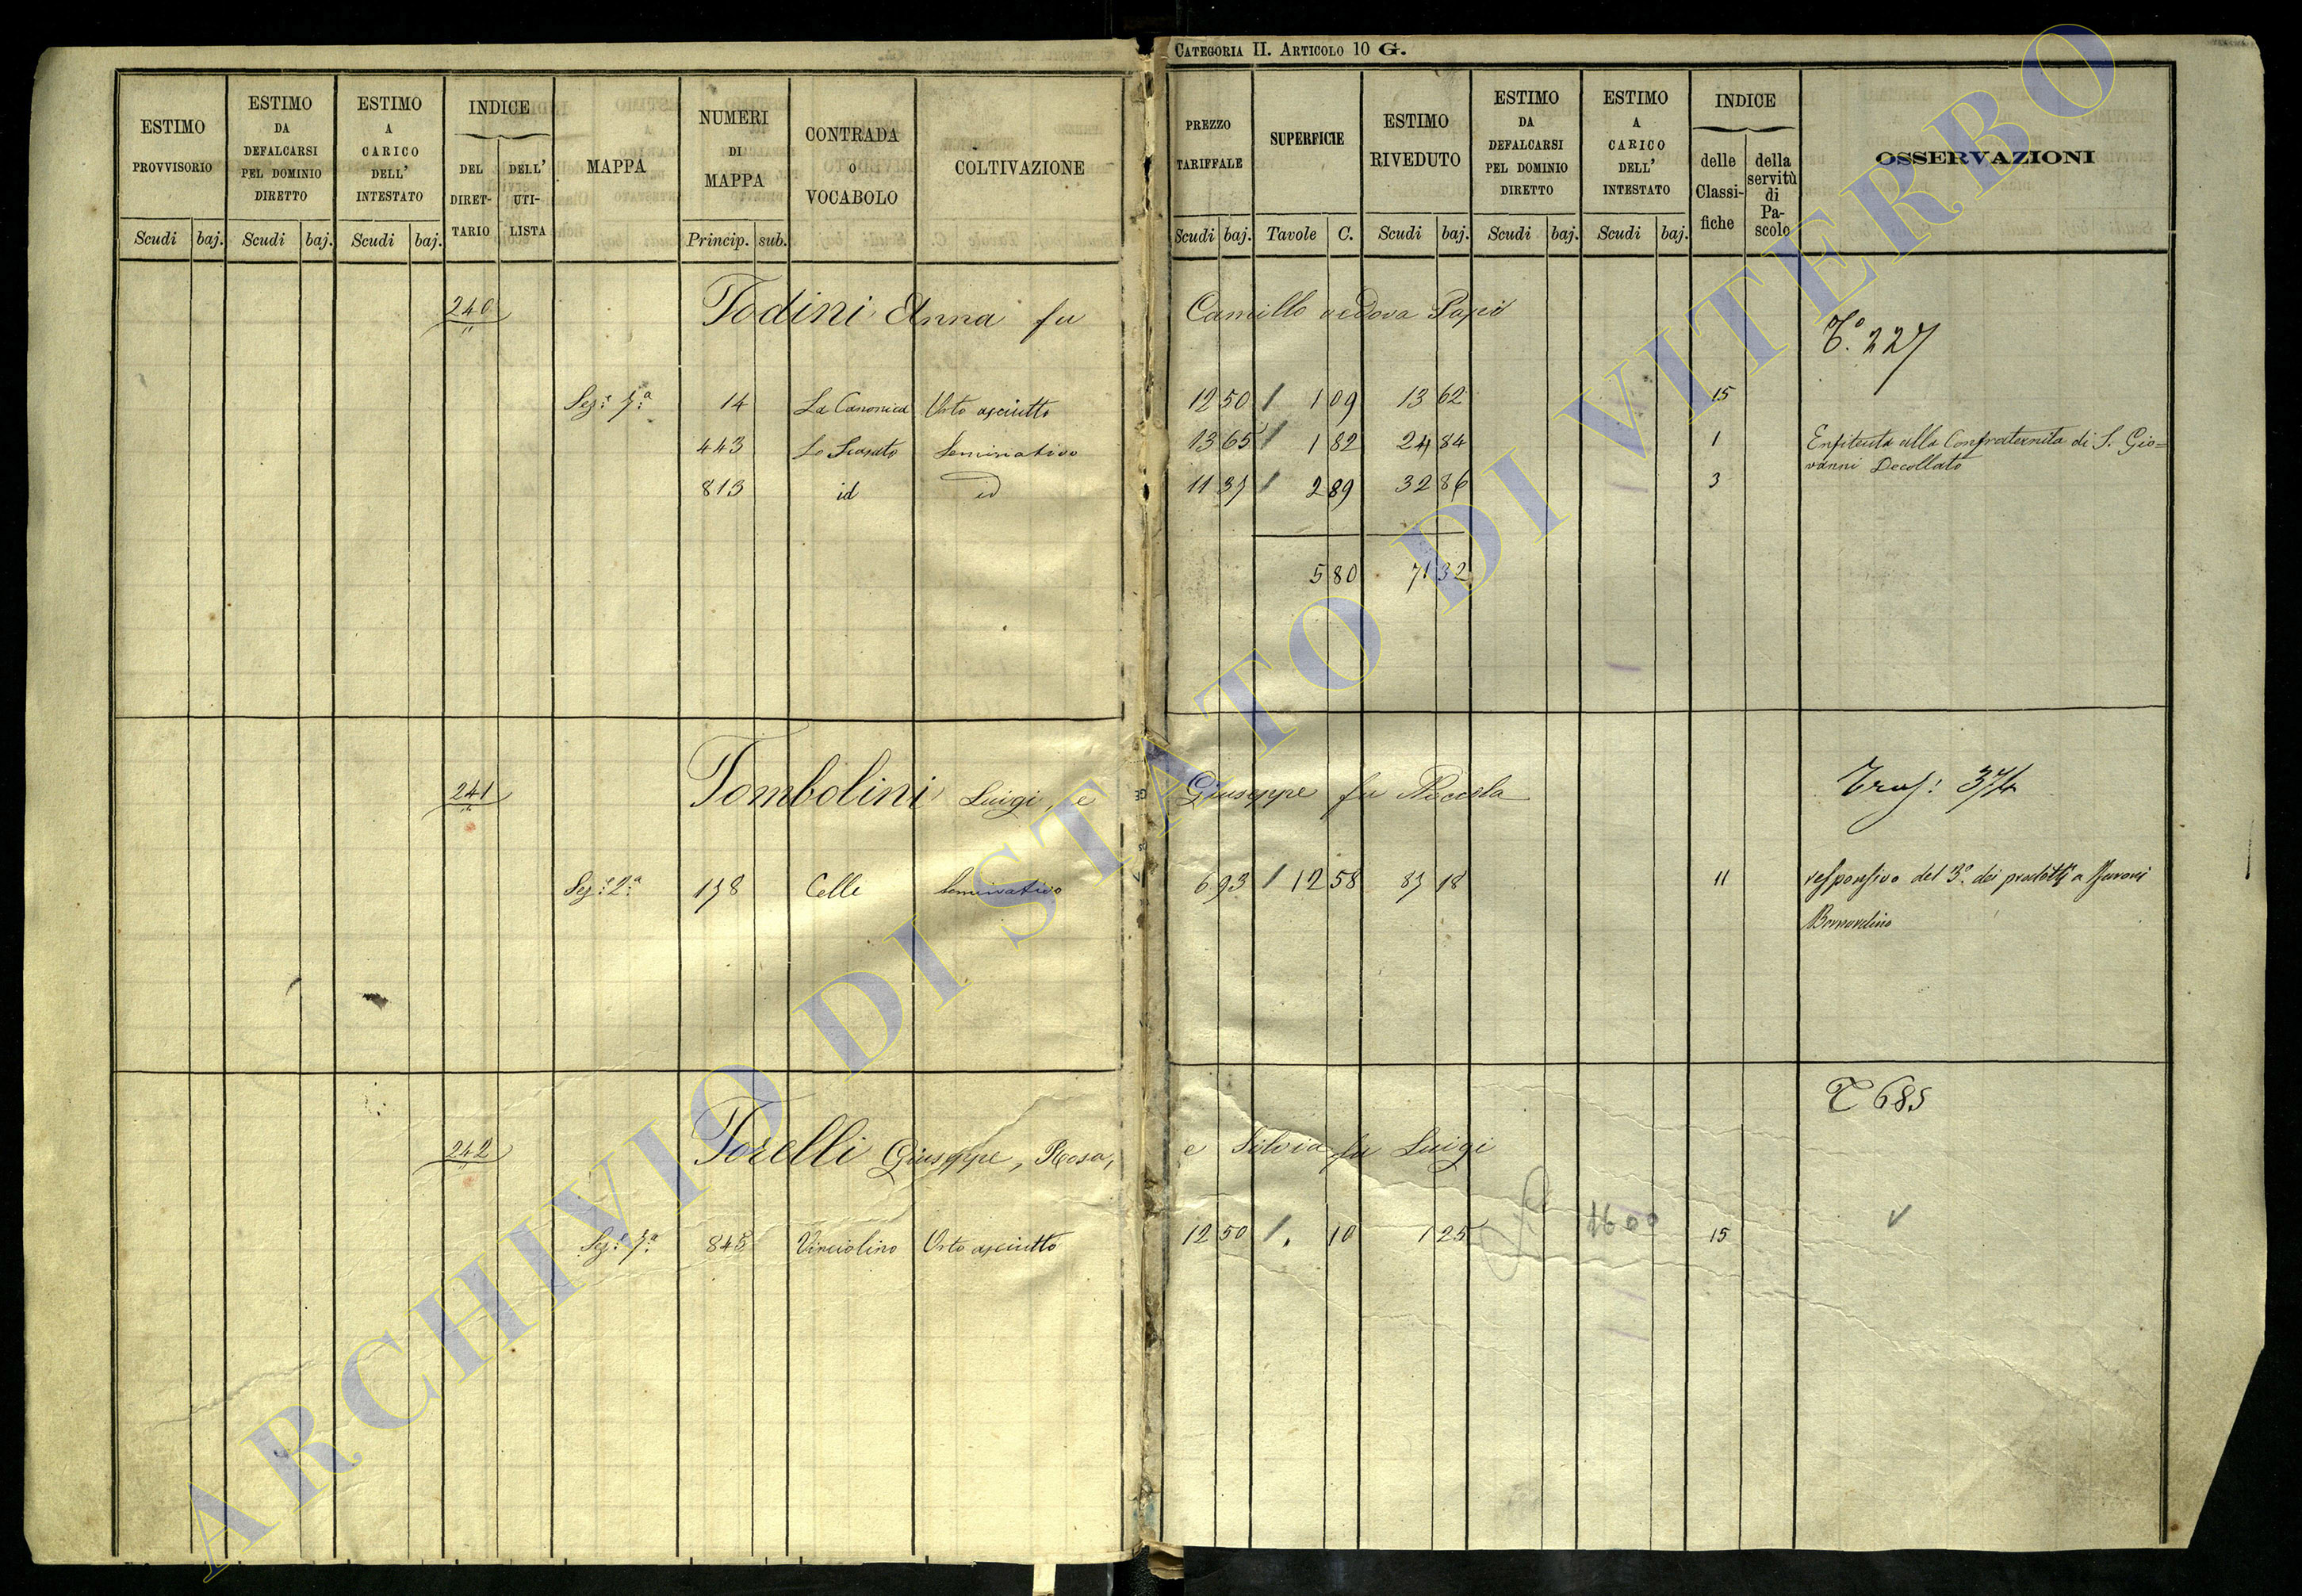 CATEGORIA II. ARTICOLO 10 G.
ESTIMO PROVVISORIO
ESTIMO DA DEFALCARSI PEL DOMINIO DIRETTO
ESTIMO A CARICO DELL' INTESTATO
INDICE
DEL DIRET-TARIO
DELL' UTI-LISTA
MAPPA
NUMERI DI MAPPA
CONTRADA O VOCABOLO
COLTIVAZIONE
PREZZO TARIFFALE
SUPERFICIE
ESTIMO RIVEDUTO
ESTIMO DA DEFALCARSI PEL DOMINIO DIRETTO
ESTIMO A CARICO DELL' INTESTATO
INDICE
delle Classi-fiche
della servitù di Pa-scolo
OSSERVAZIONI
Scudi baj. Scudi baj. Scudi baj. Princip. sub. Scudi baj. Tavole C. Scudi baj. Scudi baj. Scudi baj.
240 Todini Anna fu Camillo vedova Papi
Tº. 227
Sez:e 7:a 14 La Canonica Orto asciutto 12 50 / 1 09 13 62 15
443 Lo Scasato Seminativo 13 65 / 1 82 24 84 1 Enfiteuta alla Confraternita di S. Gio=
vanni Decollato
813 id id 11 37 / 2 89 32 86 3
5 80 71 32
241 Tombolini Luigi, e Giuseppe fu Niccola
Tras: 374
Sez:e 2:a 178 Celle Seminativo 6 93 / 12 58 87 18 11 responsivo del 3º dei prodotti a
Bernardino
T 685
242 Torelli Giuseppe, Rosa, e Silvia fu Luigi
Sez:e 7:a 845 Vinciolino Orto asciutto 12 50 / . 10 1 25 16 00 15
ARCHIVIO DI STATO DI VITERBO